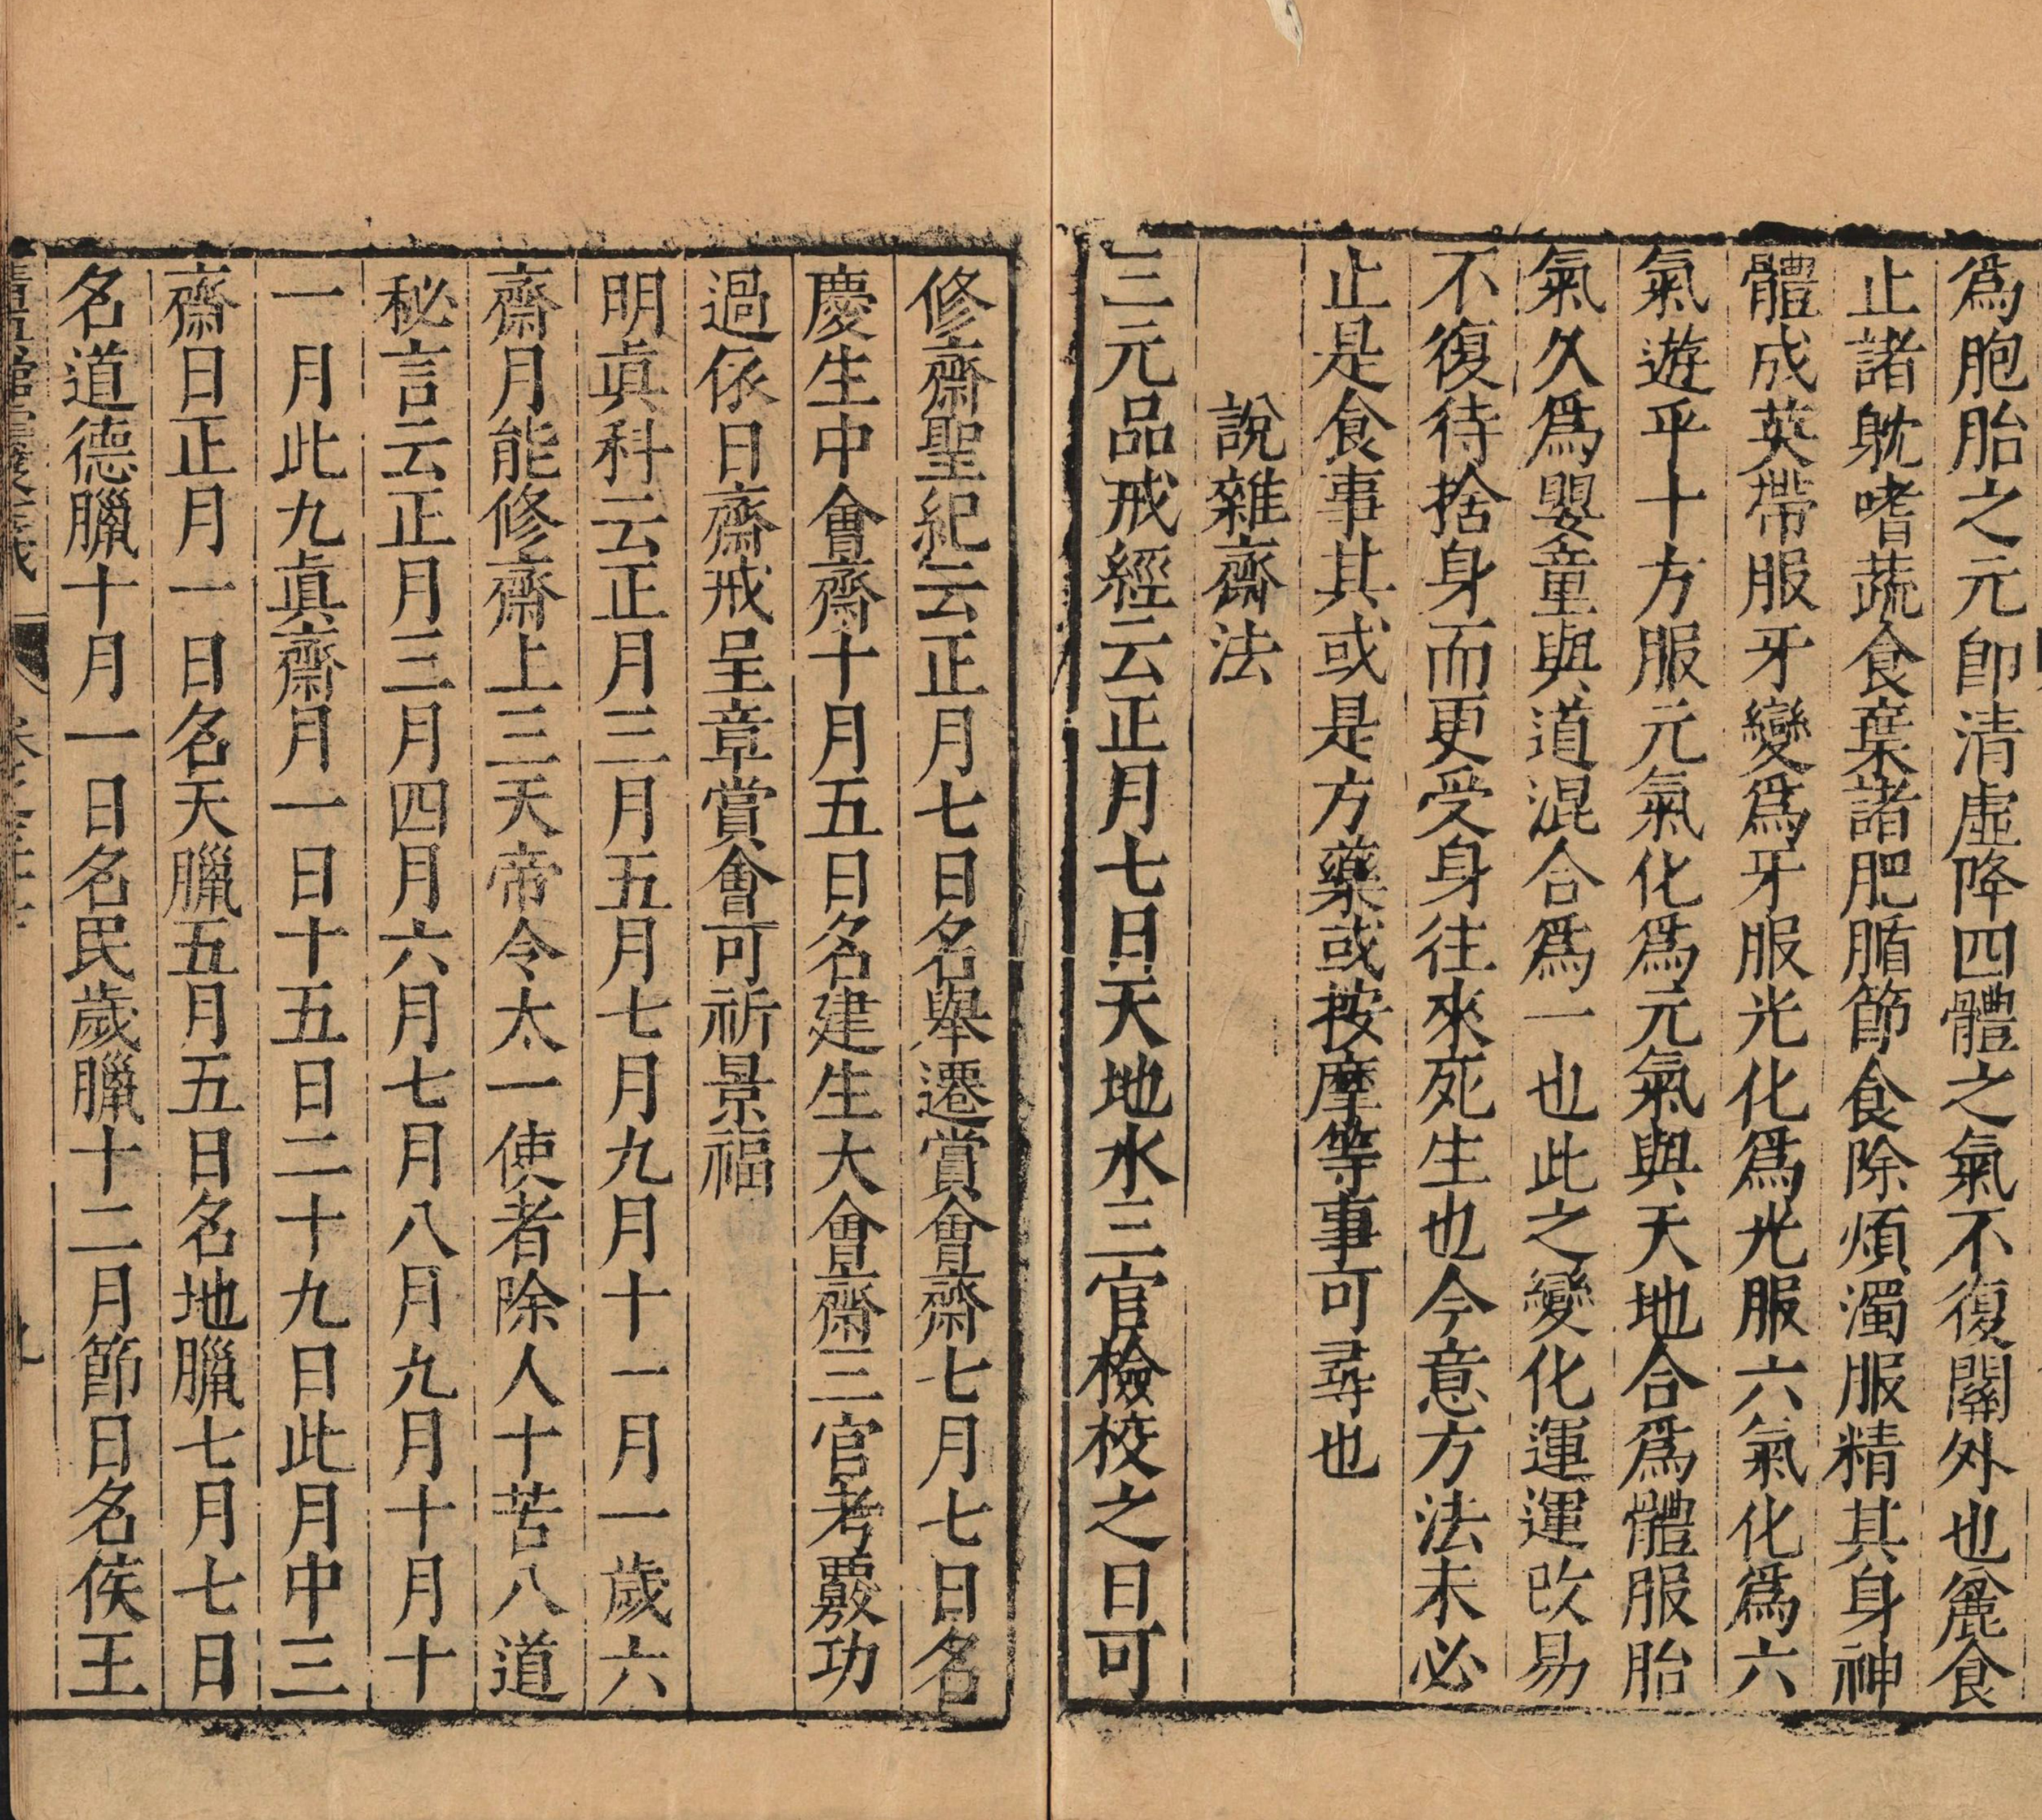 爲胞胎之元卽清虛降四體之氣不復關外也麄食
止諸躭嗜蔬食棄諸肥腯節食除煩濁服精其身神
體成英帶服牙變爲牙服光化爲光服六氣化爲六
氣遊乎十方服元氣化爲元氣與天地合爲體服胎
氣久爲嬰童與道混合爲一也此之變化運運改易
不復待捨身而更受身往來死生也今意方法未必
止是食事其或是方藥或按摩等事可尋也
說雜齋法
三元品戒經云正月七日天地水三官檢校之日可
修齋聖紀云正月七日名舉遷賞會齋七月七日名
慶生中會齋十月五日名建生大會齋三官考覈功
過依日齋戒呈章賞會可祈景福
明眞科云正月三月五月七月九月十一月一歲六
齋月能修齋上三天帝令太一使者除人十苦八道
秘言云正月三月四月六月七月八月九月十月十
一月此九眞齋月一日十五日二十九日此月中三
齋日正月一日名天臘五月五日名地臘七月七日
名道德臘十月一日名民歲臘十二月節日名侯王